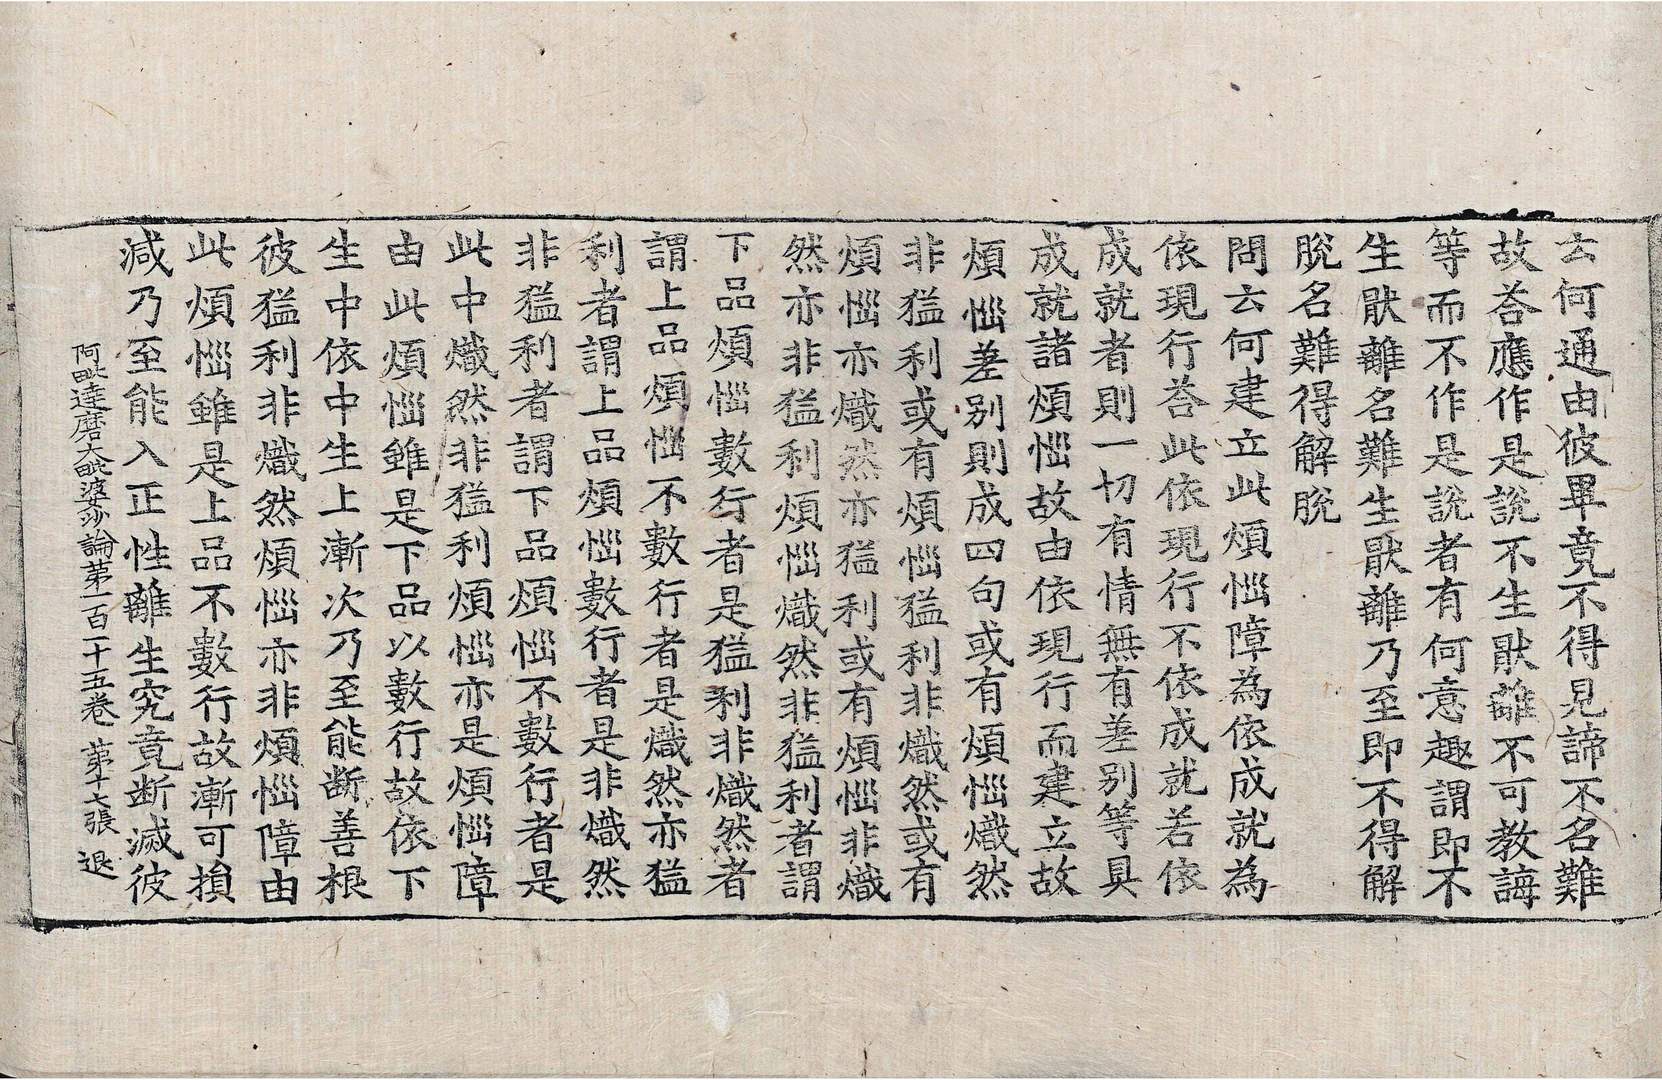 云何通由彼畢竟不得見諦不名難
故荅應作是說不生猒離不可教誨
等而不作是說者有何意趣謂即不
生猒離名難生猒離乃至即不得解
脫名難得解脫
問云何建立此煩惱障為依成就為
依現行荅此依現行不依成就若依
成就者則一切有情無有差別等具
成就諸煩惱故由依現行而建立故
煩惱差別則成四句或有煩惱熾然
非猛利或有煩惱猛利非熾然或有
煩惱亦熾然亦猛利或有煩惱非熾
然亦非猛利煩惱熾然非猛利者謂
下品煩惱數行者是猛利非熾然者
謂上品煩惱不數行者是熾然亦猛
利者謂上品煩惱數行者是非熾然
非猛利者謂下品煩惱不數行者是
此中熾然非猛利煩惱亦是煩惱障
由此煩惱雖是下品以數行故依下
生中依中生上漸次乃至能断善根
彼猛利非熾然煩惱亦非煩惱障由
此煩惱雖是上品不數行故漸可損
減乃至能入正性離生究竟断滅彼
阿毗達磨大毗婆沙論第一百一十五卷 第十七張 退